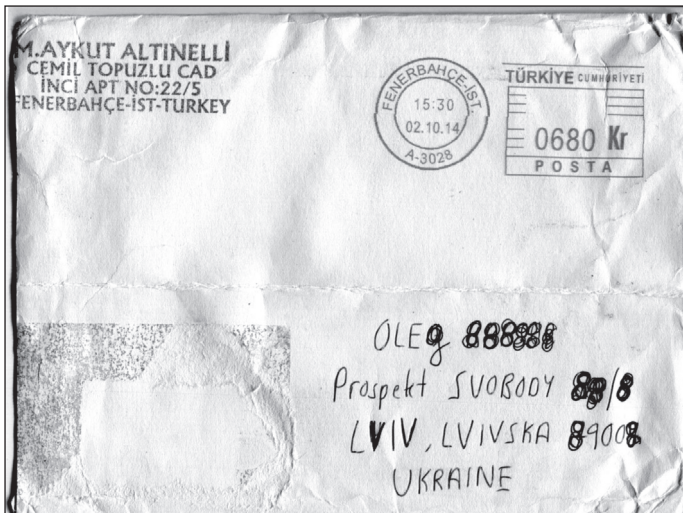 M.AYKUT ALTINELLİ
CEMİL TOPUZLU CAD
İNCİ APT NO:22/5
FENERBAHÇE-İST-TURKEY
FENERBAHÇE-İST.
15:30
02.10.14
A-3028
TÜRKİYE CUMHURİYETİ
0680 Kr
POSTA
OLEg
Prospekt SVOBODY
LVIV, LVIVSKA
UKRAINE